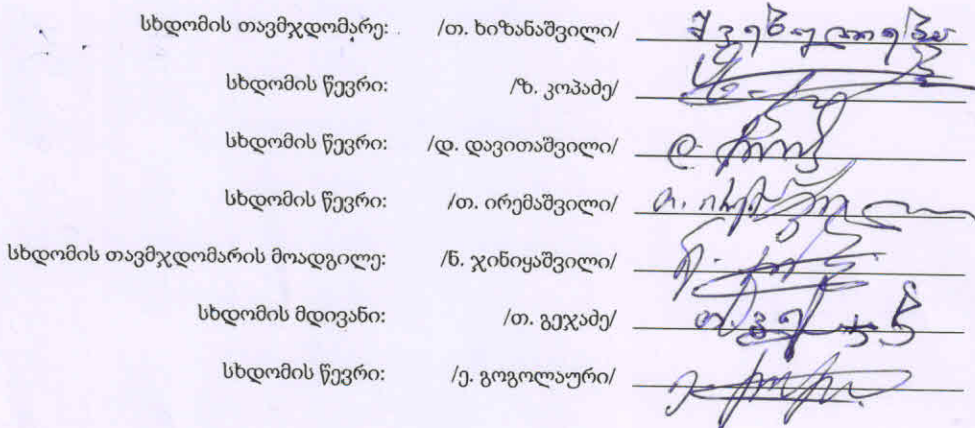 სხდომის თავმჯდომარე: /თ. ხიზანაშვილი/ შვებულება
სხდომის წევრი: /ზ. კოპაძე/
სხდომის წევრი: /დ. დავითაშვილი/
სხდომის წევრი: /თ. ირემაშვილი/
სხდომის თავმჯდომარის მოადგილე: /ნ. ჯინიყაშვილი/
სხდომის მდივანი: /თ. გეჯაძე/
სხდომის წევრი: /ე. გოგოლაური/